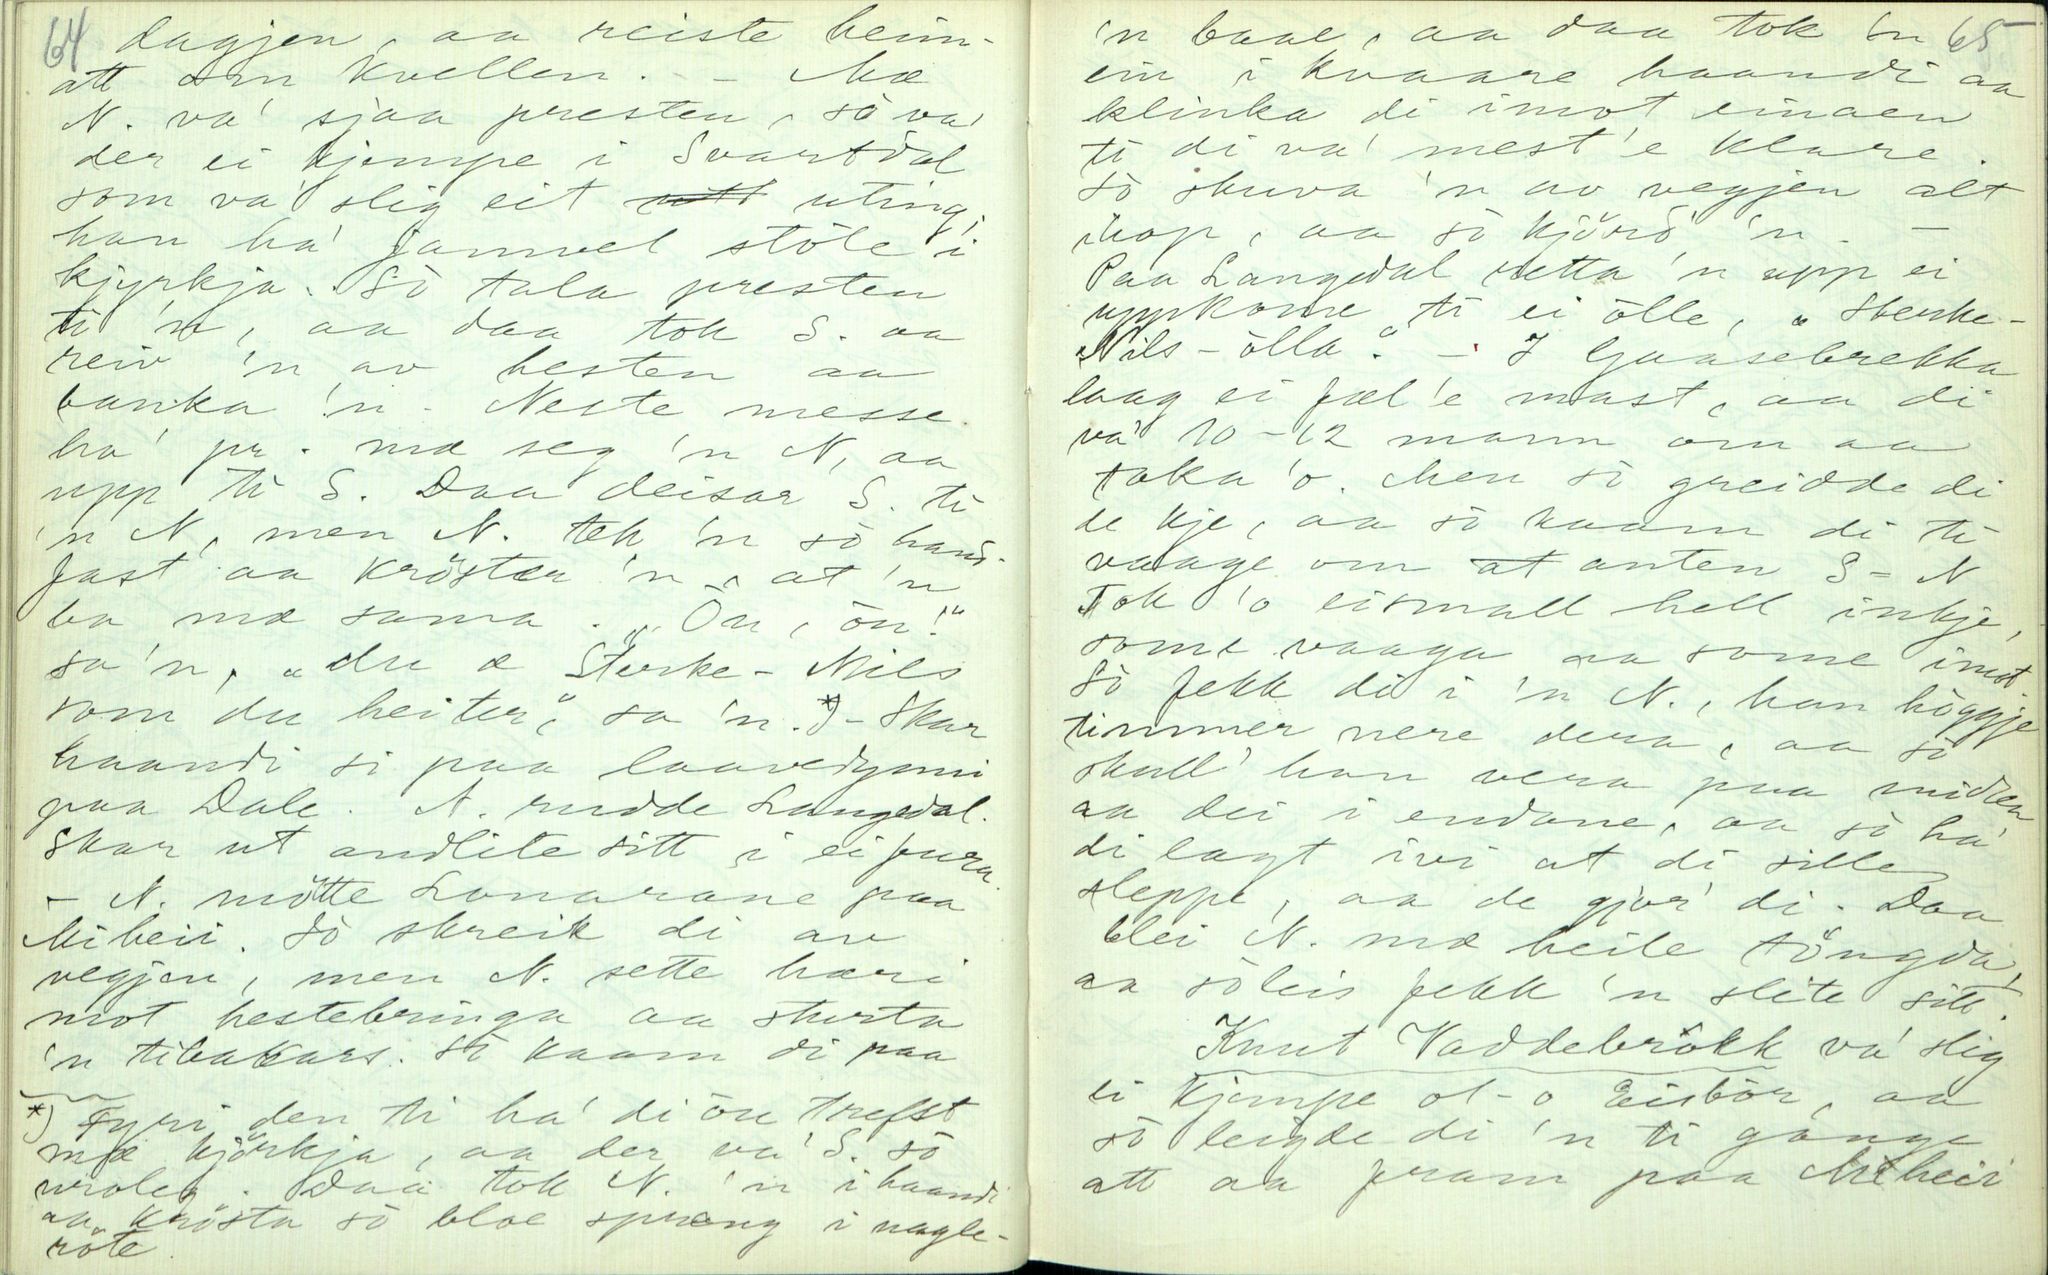 64
dagjen, aa reiste heim-
att om kvellen. - Mæ
N. va' sjaa presten, sò va'
der ei kjempe i Svartdal
som va' slig eit uting,
han ha' jamvel stòle i
kjyrkja. Sò tala presten
ti 'n, aa daa tok S. aa
reiv 'n av hesten aa
banka 'n. Neste messe
ha' pr. mæ seg 'n N, aa
upp ti S. Daa deisar S. ti
'n N, men N. tek 'n sò hand-
fast aa kröster 'n, at 'n
ba mæ sama. "Ön, ön!"
sa 'n, "du æ Sterke-Nils
som du heiter," sa 'n.*) - Skar
haandi si paa laavedynni
paa Dale. N. rudde Langedal.
Skar ut andlite sitt i ei fura.
- N. mötte Lonarane paa
Miheii. Sò skreik di av
vegjen, men N. sette hæri
mot hestebringa aa sturta
'n tibakars. Sò kaam di paa
*) Fyri den ti ha' di ön trefst
mæ kjörkja, aa der va' S. sò
uroleg. Daa tok N. 'n i haandi
aa krösta sò bloe sprang i nagle-
röte.
65
'n baae, aa daa tok 'n
ein i kvaare haandi aa
klinka di imot einaen
ti di va' mest'e klare.
Sò skuva 'n av vegjen alt
ihop, aa sò kjörd' 'n. -
Paa Langedal sette 'n upp ei
uppkome ti ei ölle, "Sterke-
Nils-ölla". - I Gaasebrekka
laag ei fæl'e mast, aa di
va' 10-12 mann om aa
taka 'o. Men sò greidde di
de kje, aa sò kaam di ti
vaage om at anten S-N
tok 'o eismall hell inkje,
some vaaga aa some imot
Sò fekk di i 'n N., han höggje
timmer nere dera, aa sò
skull' han vera paa midten
aa dei i endane, aa sò ha'
di lagt ivi at di sille
sleppe, aa de gjor' di. Daa
blei N. mæ heile töngda,
aa sòleis fekk 'n slite sitt.
Knut Vaddebrökk va' slig
ei kjempe ot-o Eisbör, aa
sò leigde di 'n ti gange
att aa fram paa Miheii